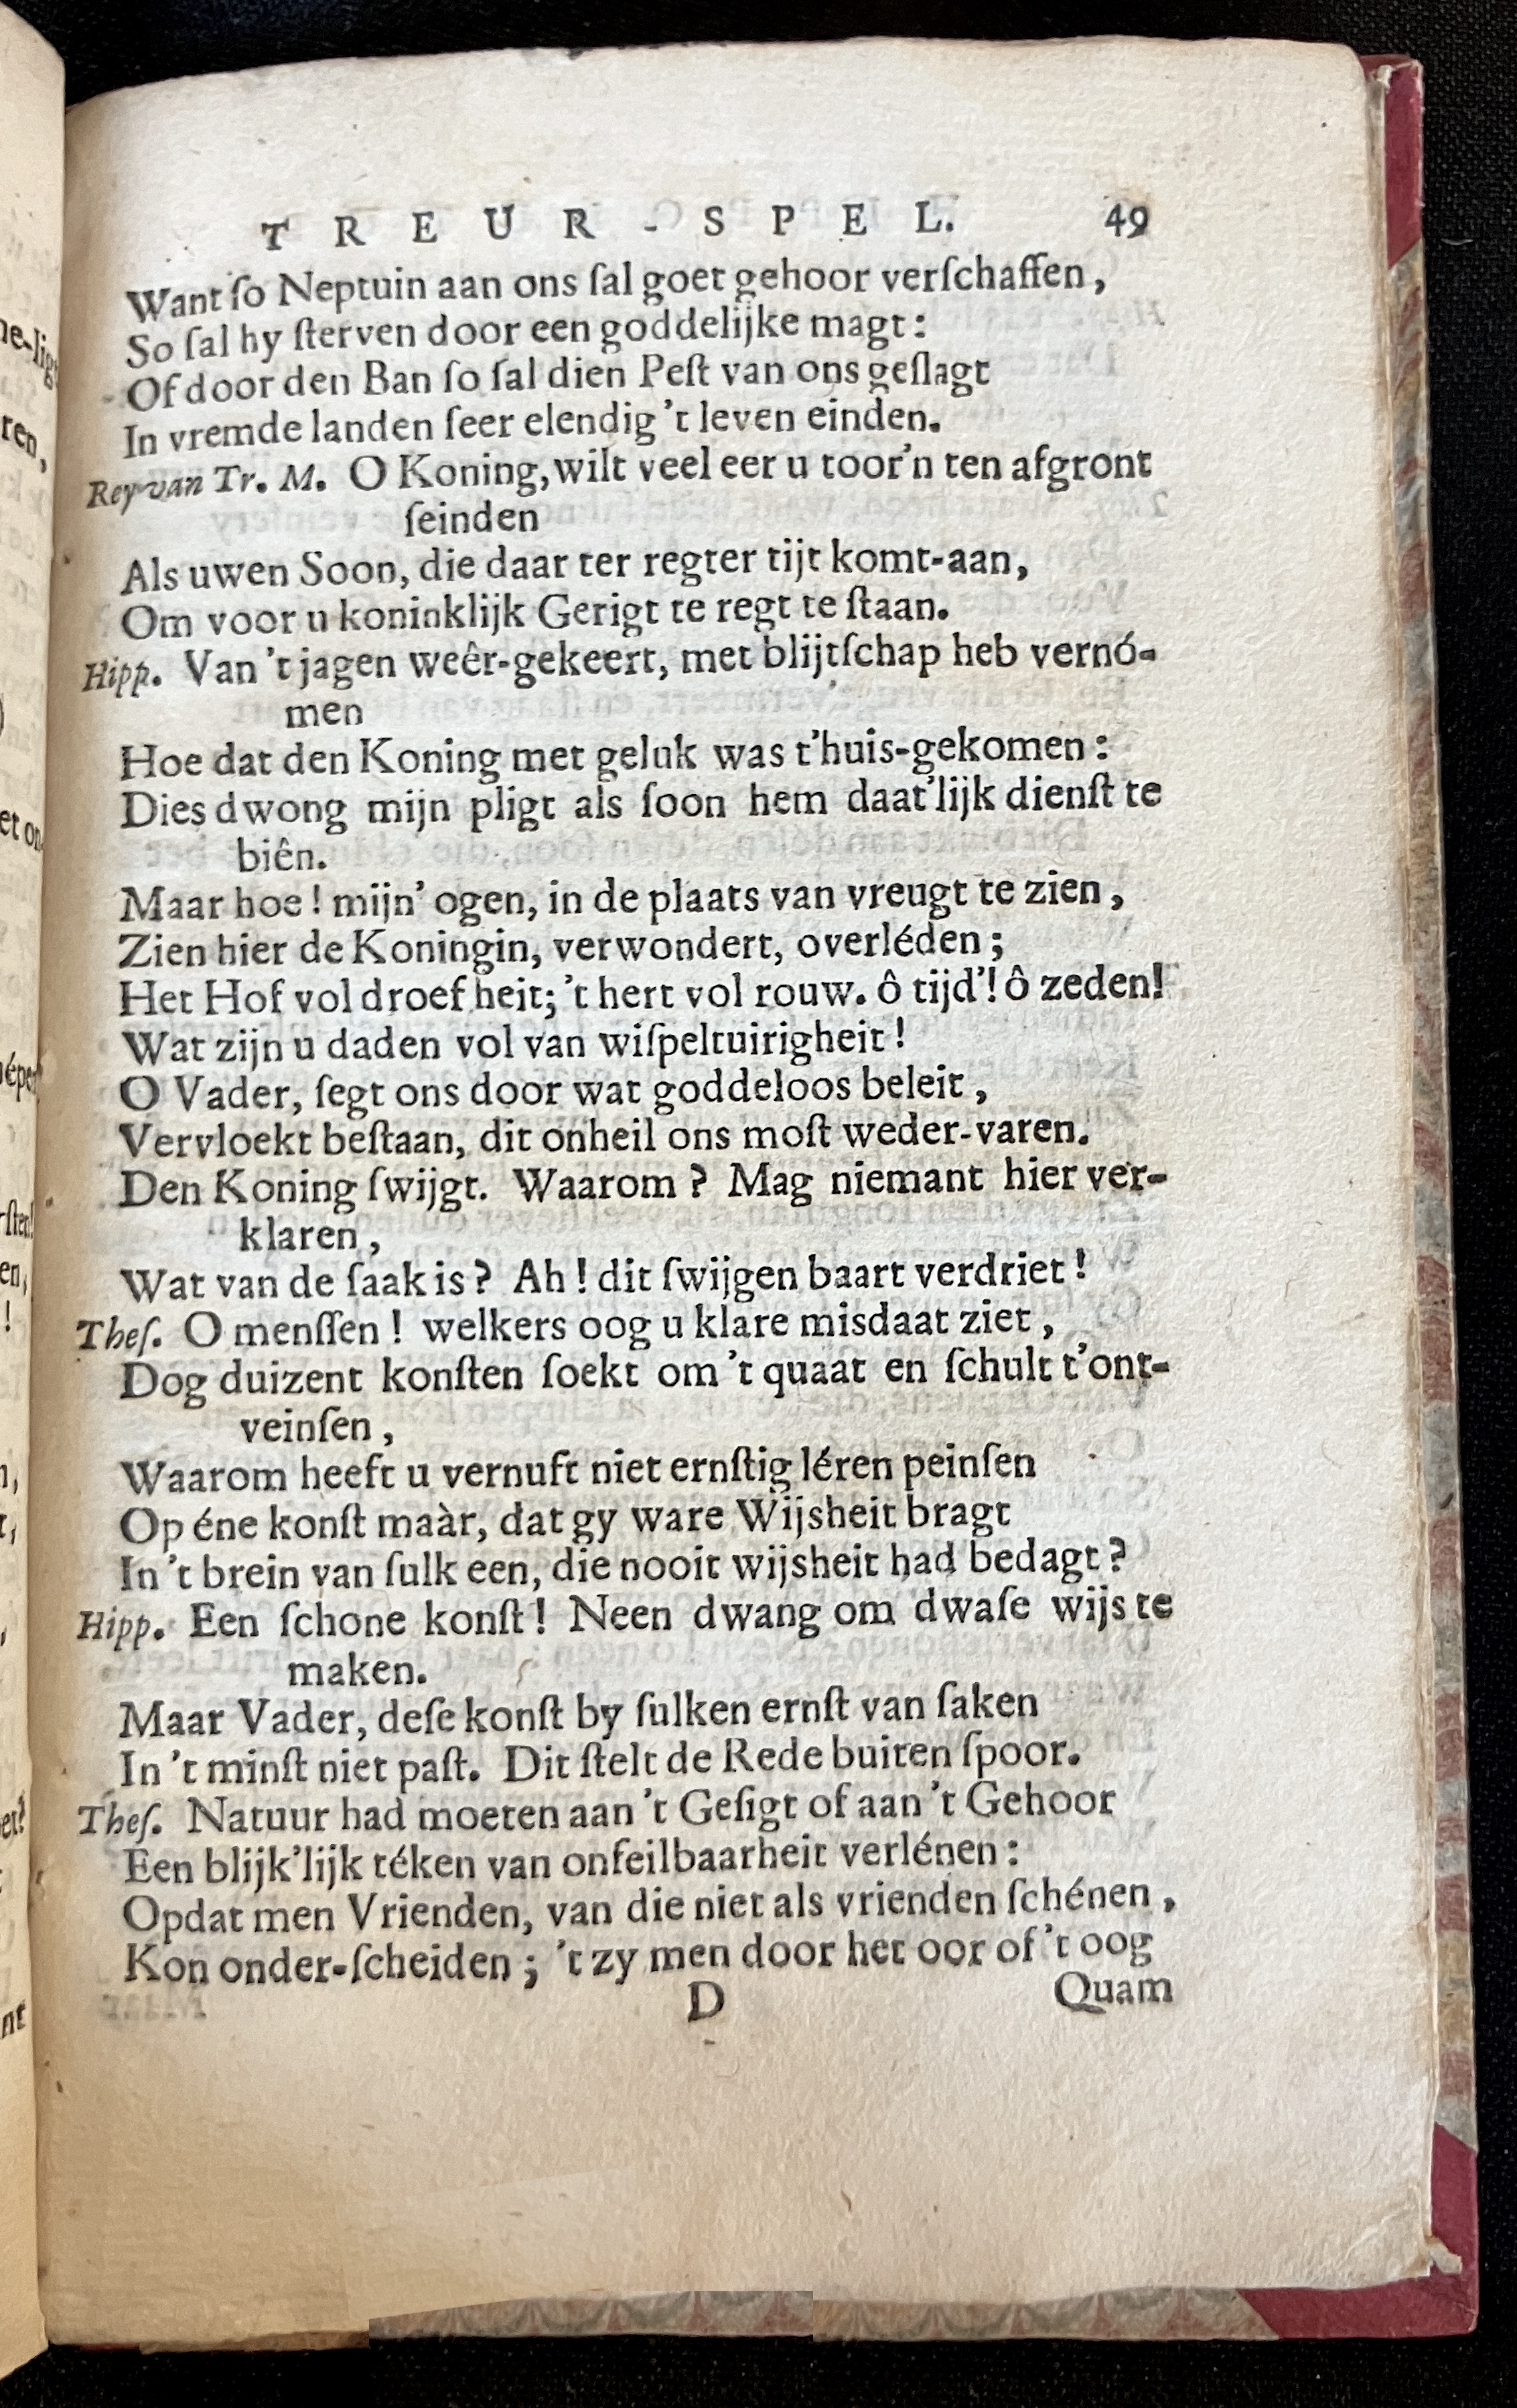 TREUR-SPEL. 49
Want ſo Neptuin aan ons ſal goet gehoor verſchaffen,
So ſal hy ſterven door een goddelijke magt:
Of door den Ban ſo ſal dien Peſt van ons geſlagt
In vremde landen ſeer elendig 't leven einden.
Rey van Tr. M. O Koning, wilt veel eer u toor'n ten afgront
ſeinden
Als uwen Soon, die daar ter regter tijt komt-aan,
Om voor u koninklijk Gerigt te regt te ſtaan.
Hipp. Van 't jagen weêr-gekeert, met blijtſchap heb vernó-
men
Hoe dat den Koning met geluk was t'huis-gekomen:
Dies dwong mijn pligt als ſoon hem daat'lijk dienſt te
biên.
Maar hoe! mijn' ogen, in de plaats van vreugt te zien,
Zien hier de Koningin, verwondert, overléden;
Het Hof vol droefheit; 't hert vol rouw. ô tijd'! ô zeden!
Wat zijn u daden vol van wiſpeltuirigheit!
O Vader, ſegt ons door wat goddeloos beleit,
Vervloekt beſtaan, dit onheil ons moſt weder-varen.
Den Koning ſwijgt. Waarom? Mag niemant hier ver-
klaren,
Wat van de ſaak is? Ah! dit ſwijgen baart verdriet!
Theſ. O menſſen! welkers oog u klare misdaat ziet,
Dog duizent konſten ſoekt om 't quaat en ſchult t'ont-
veinſen,
Waarom heeft u vernuft niet ernſtig léren peinſen
Op éne konſt maàr, dat gy ware Wijsheit bragt
In 't brein van ſulk een, die nooit wijsheit had bedagt?
Hipp. Een ſchone konſt! Neen dwang om dwaſe wijs te
maken.
Maar Vader, deſe konſt by ſulken ernſt van ſaken
In 't minſt niet paſt. Dit ſtelt de Rede buiten ſpoor.
Theſ. Natuur had moeten aan 't Geſigt of aan 't Gehoor
Een blijk'lijk téken van onfeilbaarheit verlénen:
Opdat men Vrienden, van die niet als vrienden ſchénen,
Kon onder-ſcheiden; 't zy men door het oor of 't oog
D Quam